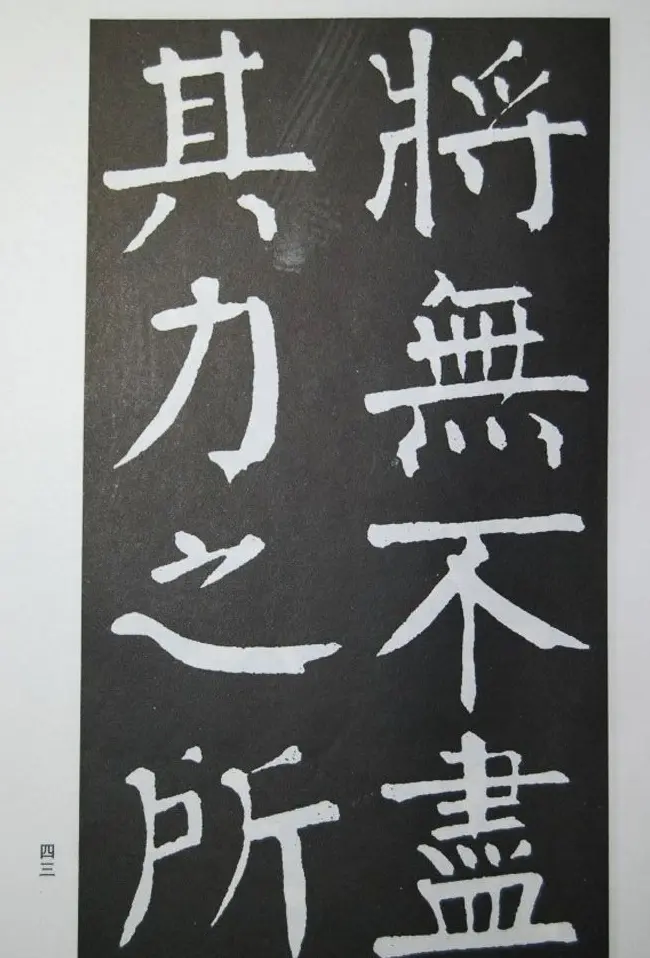 將無不盡
其力之所
四三